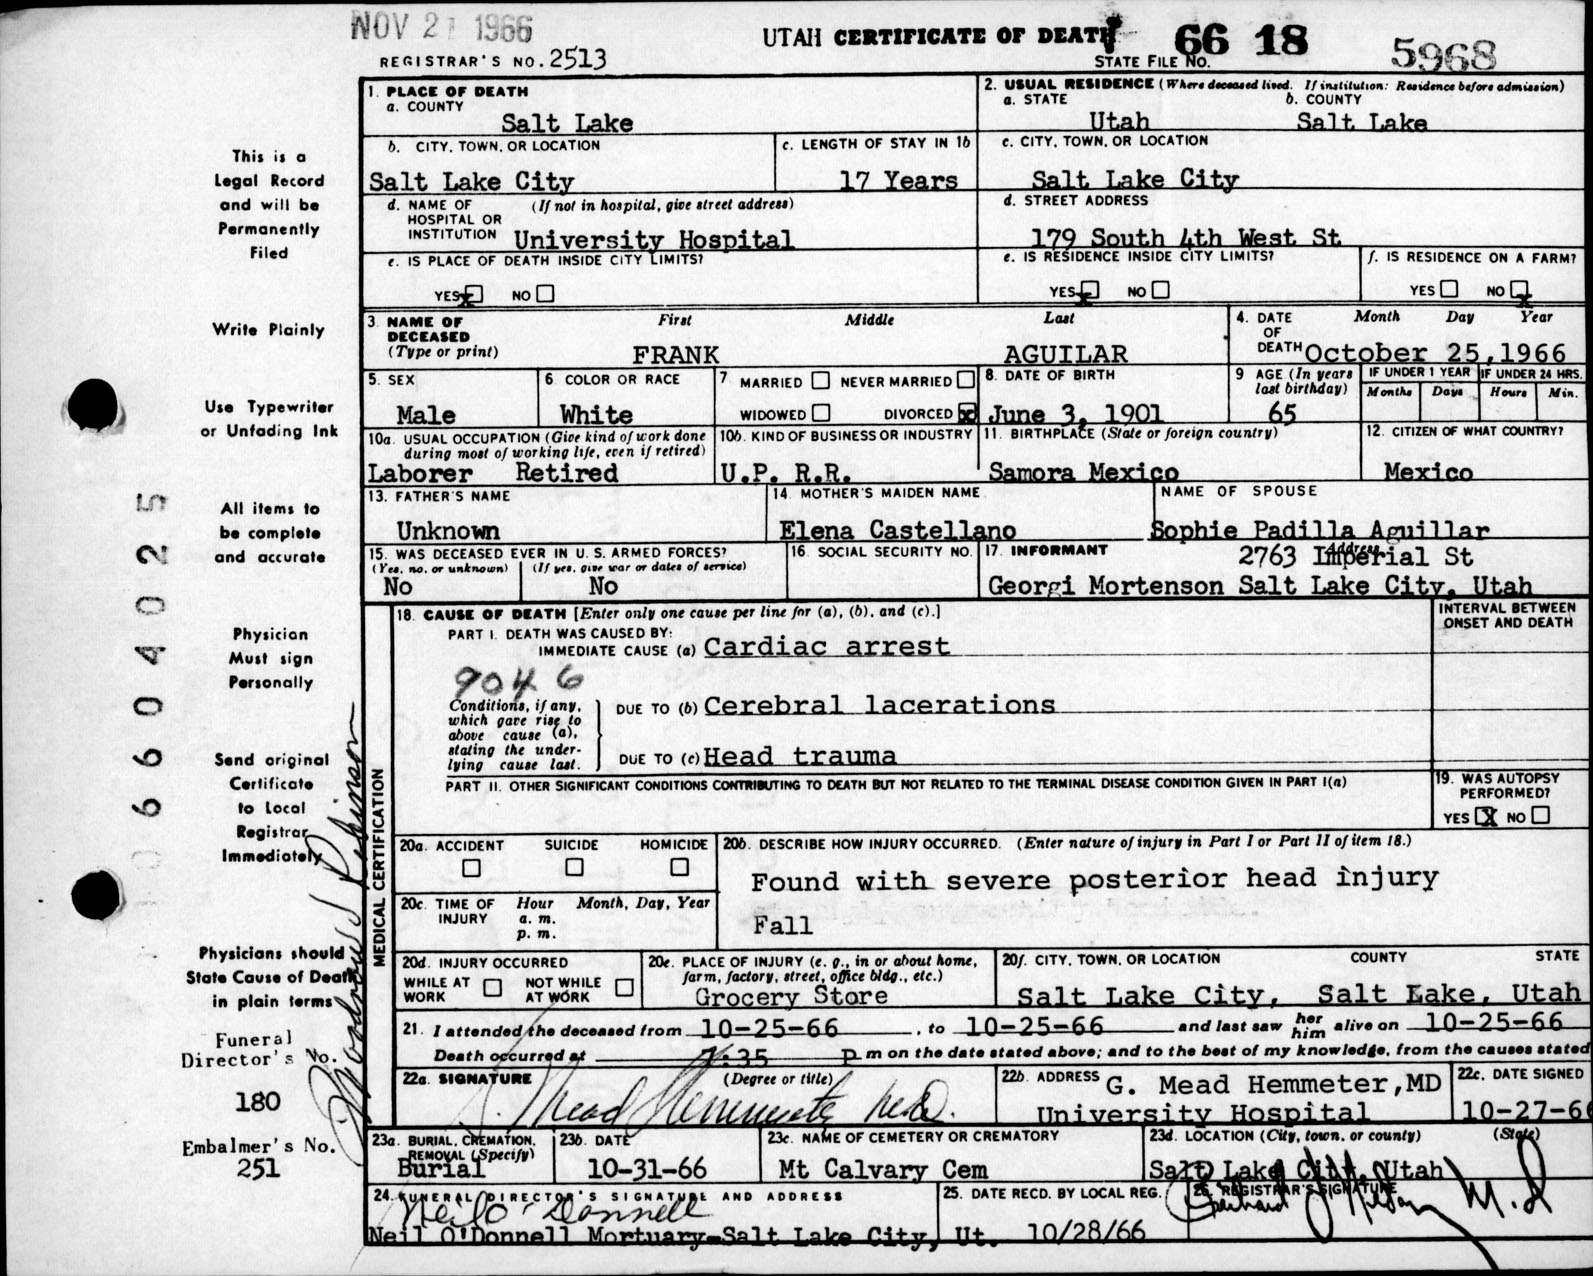 NOV 21 1966
UTAH CERTIFICATE OF DEATH
66 18 5968
REGISTRAR'S NO. 2513
STATE FILE NO.
This is a
Legal Record
and will be
Permanently
Filed
Write Plainly
Use Typewriter
or Unfading Ink
All items to
be complete
and accurate
Physician
Must sign
Personally
Send original
Certificate
to Local
Registrar
Immediately
Physicians should
State Cause of Death
in plain terms
Funeral
Director's No.
180
Embalmer's No.
251
06604025
1. PLACE OF DEATH
a. COUNTY
Salt Lake
2. USUAL RESIDENCE (Where deceased lived. If institution: Residence before admission)
a. STATE b. COUNTY
Utah Salt Lake
b. CITY, TOWN, OR LOCATION
Salt Lake City
c. LENGTH OF STAY IN 1b
17 Years
c. CITY, TOWN, OR LOCATION
Salt Lake City
d. NAME OF (If not in hospital, give street address)
HOSPITAL OR
INSTITUTION University Hospital
d. STREET ADDRESS
179 South 4th West St
e. IS PLACE OF DEATH INSIDE CITY LIMITS?
YES x NO
e. IS RESIDENCE INSIDE CITY LIMITS?
YES x NO
f. IS RESIDENCE ON A FARM?
YES NO x
3. NAME OF DECEASED
(Type or print)
First Middle Last
FRANK AGUILAR
4. DATE OF DEATH
Month Day Year
October 25,1966
5. SEX
Male
6. COLOR OR RACE
White
7 MARRIED NEVER MARRIED
WIDOWED DIVORCED x
8. DATE OF BIRTH
June 3, 1901
9 AGE (In years
last birthday)
65
IF UNDER 1 YEAR
Months Days
IF UNDER 24 HRS.
Hours Min.
10a. USUAL OCCUPATION (Give kind of work done
during most of working life, even if retired)
Laborer Retired
10b. KIND OF BUSINESS OR INDUSTRY
U.P. R.R.
11. BIRTHPLACE (State or foreign country)
Samora Mexico
12. CITIZEN OF WHAT COUNTRY?
Mexico
13. FATHER'S NAME
Unknown
14. MOTHER'S MAIDEN NAME
Elena Castellano
NAME OF SPOUSE
Sophie Padilla Aguillar
15. WAS DECEASED EVER IN U. S. ARMED FORCES?
(Yes, no, or unknown) (If yes, give war or dates of service)
No No
16. SOCIAL SECURITY NO.
17. INFORMANT Address
2763 Imperial St
Georgi Mortenson Salt Lake City, Utah
MEDICAL CERTIFICATION
18. CAUSE OF DEATH [Enter only one cause per line for (a), (b), and (c).]
INTERVAL BETWEEN
ONSET AND DEATH
PART I. DEATH WAS CAUSED BY:
IMMEDIATE CAUSE (a) Cardiac arrest
904 6
Conditions, if any,
which gave rise to
above cause (a),
stating the under-
lying cause last.
DUE TO (b) Cerebral lacerations
DUE TO (c) Head trauma
PART II. OTHER SIGNIFICANT CONDITIONS CONTRIBUTING TO DEATH BUT NOT RELATED TO THE TERMINAL DISEASE CONDITION GIVEN IN PART I(a)
19. WAS AUTOPSY
PERFORMED?
YES X NO
20a. ACCIDENT SUICIDE HOMICIDE
20b. DESCRIBE HOW INJURY OCCURRED. (Enter nature of injury in Part I or Part II of item 18.)
Found with severe posterior head injury
Fall
20c. TIME OF INJURY
Hour Month, Day, Year
a. m.
p. m.
20d. INJURY OCCURRED
WHILE AT WORK NOT WHILE AT WORK
20e. PLACE OF INJURY (e. g., in or about home,
farm, factory, street, office bldg., etc.)
Grocery Store
20f. CITY, TOWN, OR LOCATION COUNTY STATE
Salt Lake City, Salt Lake, Utah
21. I attended the deceased from 10-25-66, to 10-25-66 and last saw her him alive on 10-25-66
Death occurred at 7:35 P m on the date stated above; and to the best of my knowledge, from the causes stated
22a. SIGNATURE (Degree or title)
G. Mead Hemmeter M.D.
22b. ADDRESS G. Mead Hemmeter,MD
University Hospital
22c. DATE SIGNED
10-27-66
23a. BURIAL, CREMATION,
REMOVAL (Specify)
Burial
23b. DATE
10-31-66
23c. NAME OF CEMETERY OR CREMATORY
Mt Calvary Cem
23d. LOCATION (City, town, or county) (State)
Salt Lake City, Utah
24. FUNERAL DIRECTOR'S SIGNATURE AND ADDRESS
Neil O'Donnell
Neil O'Donnell Mortuary-Salt Lake City, Ut.
25. DATE RECD. BY LOCAL REG.
10/28/66
26. REGISTRAR'S SIGNATURE
M.D